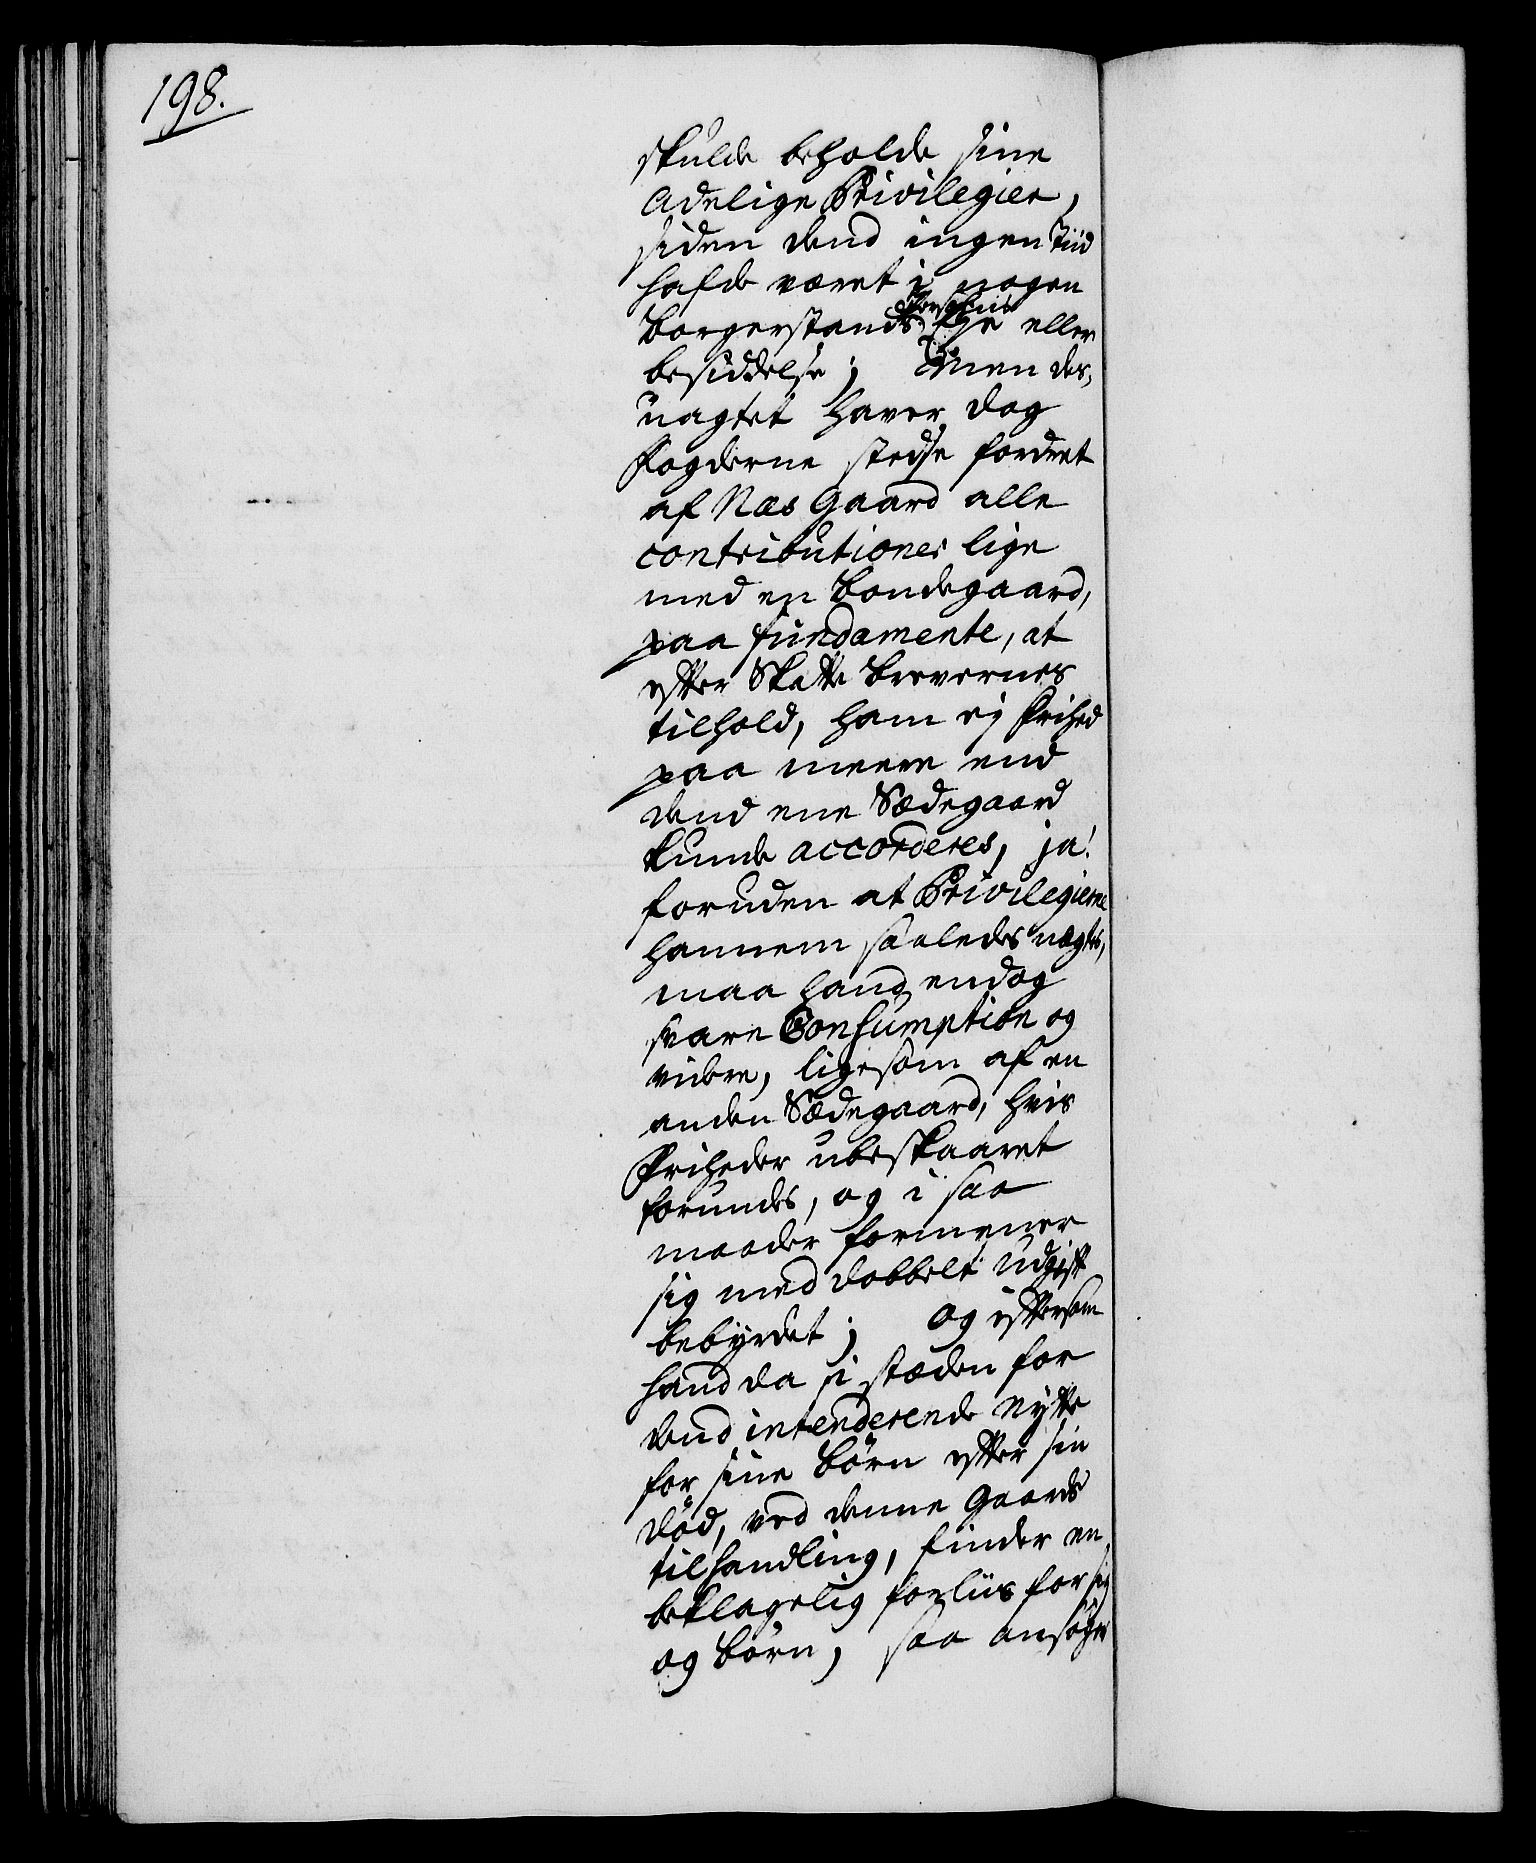 198.
skulde beholde sine
Adelige Privilegier,
siden dend ingen Tiid
hafde været i nogen
Persohns
borgerstands Eye eller
besiddelse; Men des-
uagtet haver dog
Fogderne stedse fordret
af Næs Gaard alle
contributioner lige
med en bondegaard,
paa fundamente, at
efter Skatte brevernes
tilhold, ham ej Frihed
paa meere end
dend ene Sædegaard
kunde accorderes, ja!
foruden at Privilegierne
hannem saaledes nægtes,
maa hand endog
svare Consumption og
videre, ligesom af en
anden Sædegaard, hvis
Friheder ubeskaaret
forundes, og i saa
maader formener
sig med dobbelt Udgift
bebyrdet; og eftersom
hand da i stæden for
dend intenderende Nytte
for sine börn efter sin
död, ved denne Gaards
tilhandling, finder en
beklagelig forliis for sig
og börn, saa ansöger